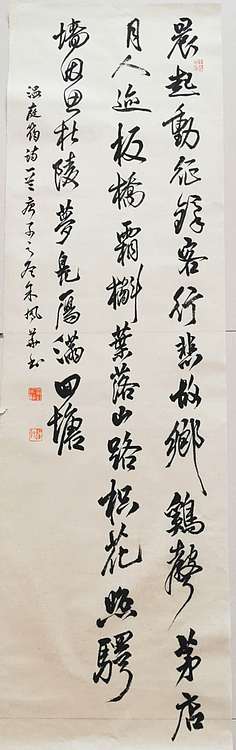 晨起動征鐸客行悲故鄉鷄聲茅店
月人迹板橋霜槲葉落山路枳花照驛
墻因思杜陵夢鳧雁滿回塘
溫庭筠詩一首 朱楓 書